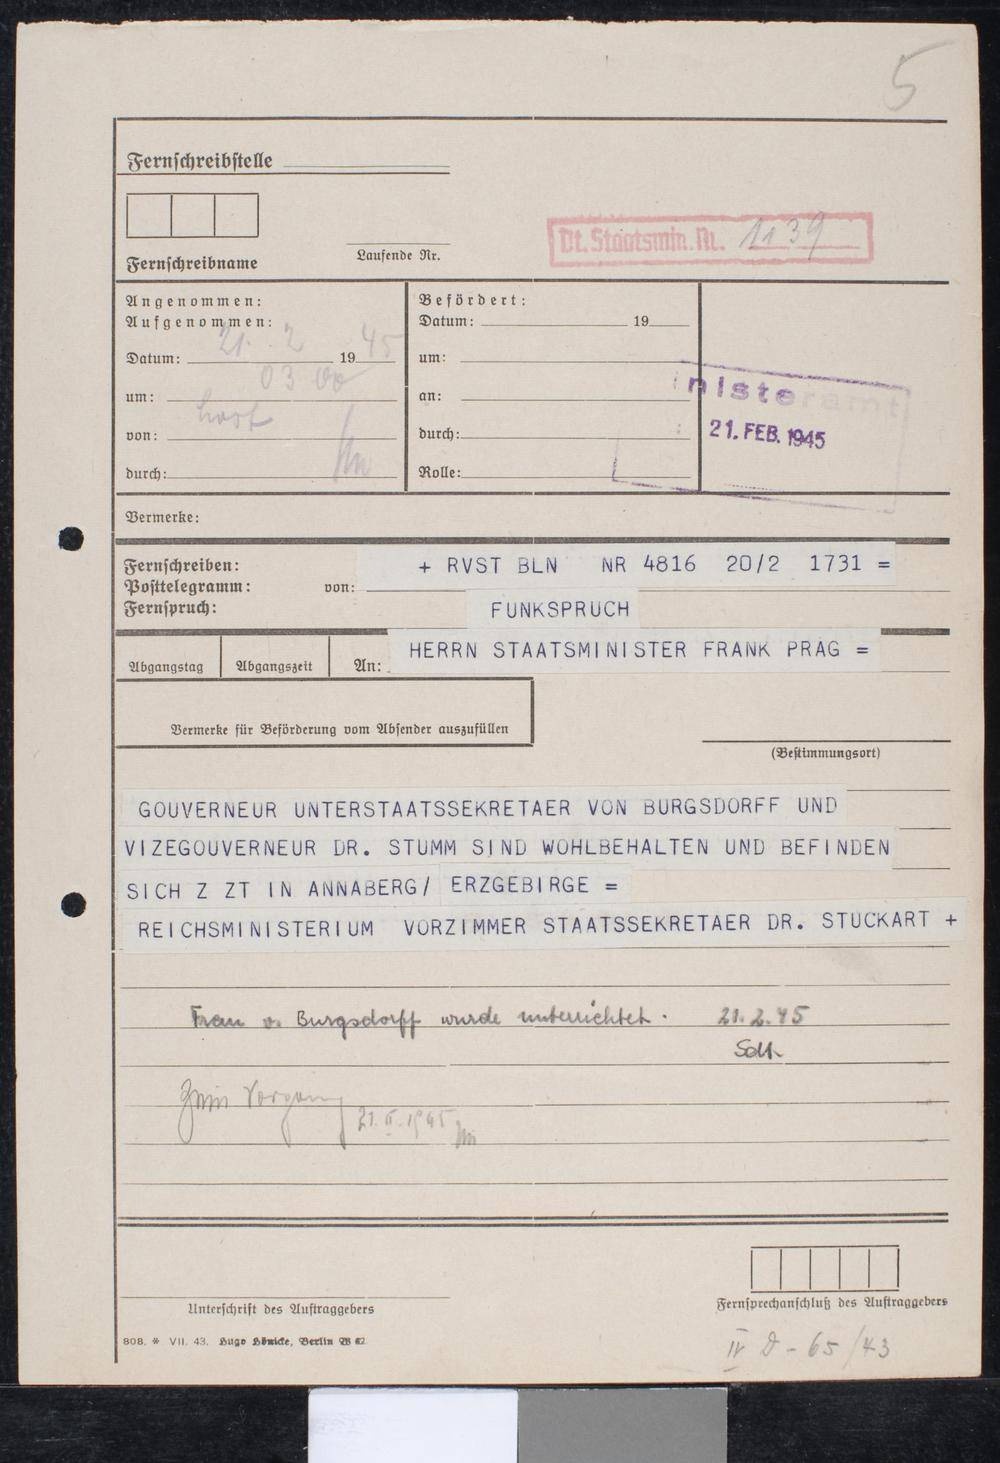 5
Fernschreibstelle
Fernschreibname
Laufende Nr.
Dt. Staatsmin. Nr. 1139
Angenommen:
Aufgenommen:
Datum: 21. 2 1945
um: 03 00
von:
durch:
Befördert:
Datum: 19
um:
an:
durch:
Rolle:
nisteramt
21. FEB. 1945
Vermerke:
Fernschreiben:
Posttelegramm:
Fernspruch:
von:
+ RVST BLN NR 4816 20/2 1731 =
FUNKSPRUCH
Abgangstag
Abgangszeit
An: HERRN STAATSMINISTER FRANK PRAG =
Vermerke für Beförderung vom Absender auszufüllen
(Bestimmungsort)
GOUVERNEUR UNTERSTAATSSEKRETAER VON BURGSDORFF UND
VIZEGOUVERNEUR DR. STUMM SIND WOHLBEHALTEN UND BEFINDEN
SICH Z ZT IN ANNABERG/ ERZGEBIRGE =
REICHSMINISTERIUM VORZIMMER STAATSSEKRETAER DR. STUCKART +
Frau v. Burgsdorff wurde unterrichtet. 21.2.45
Zum Vorgang
21.II.1945
Unterschrift des Auftraggebers
Fernsprechanschluß des Auftraggebers
808. * VII. 43. Hugo Hönicke, Berlin W 62
IV D - 65/43